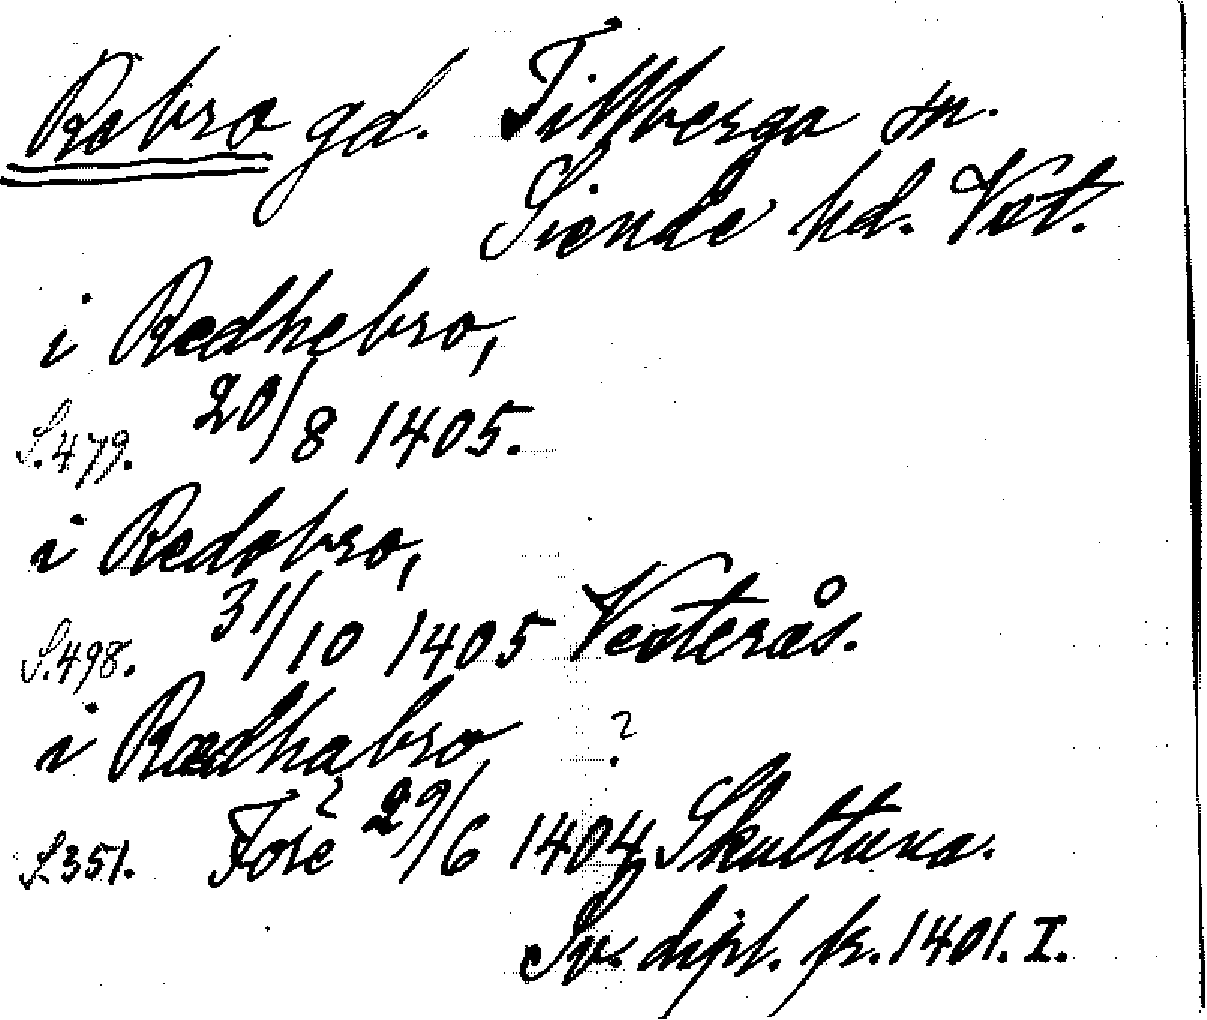 Rebro gd. Tillberga sn.
Siende hd. Vstm.
i Redhebro,
S. 479. 20/8 1405.
i Redobro,
S. 498. 31/10 1405 Vesterås.
i Rædhabro ?
S. 351. Före 29/6 1404 Skultuna.
Sv. dipl. fr. 1401. I.